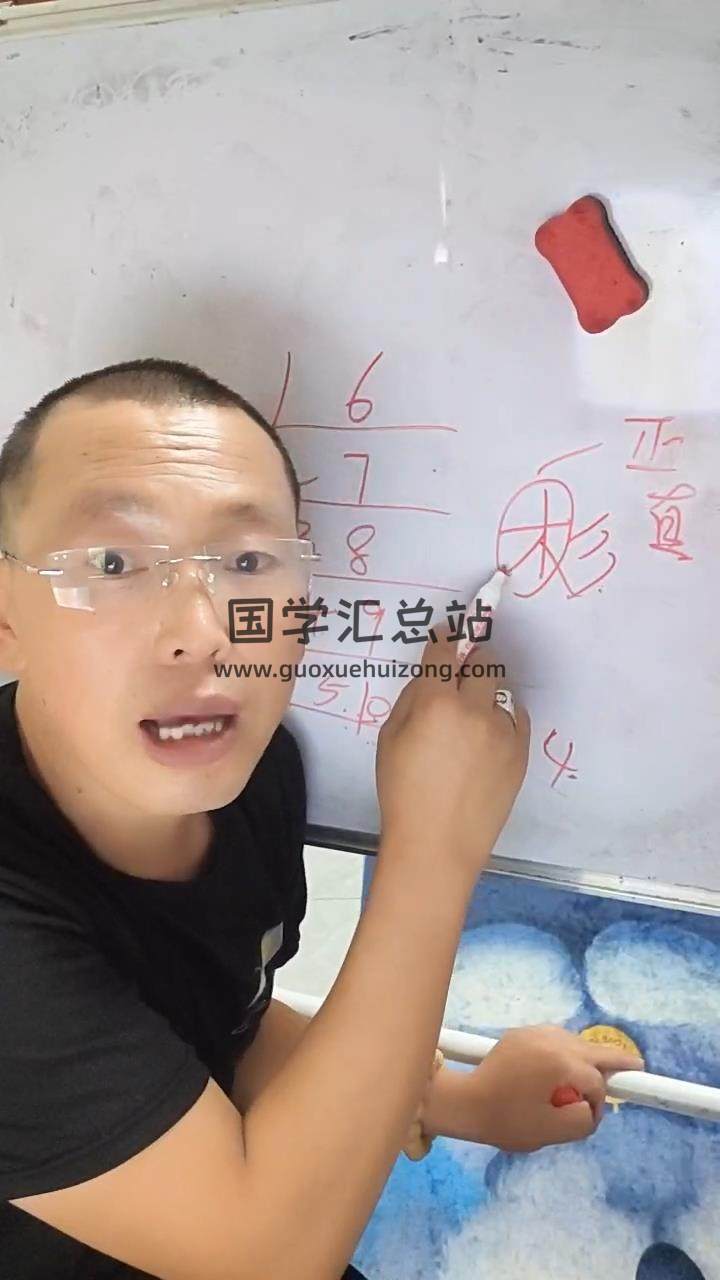 1 6
7
8
9
5 10
正
直
4
国学汇总站
www.guoxuehuizong.com